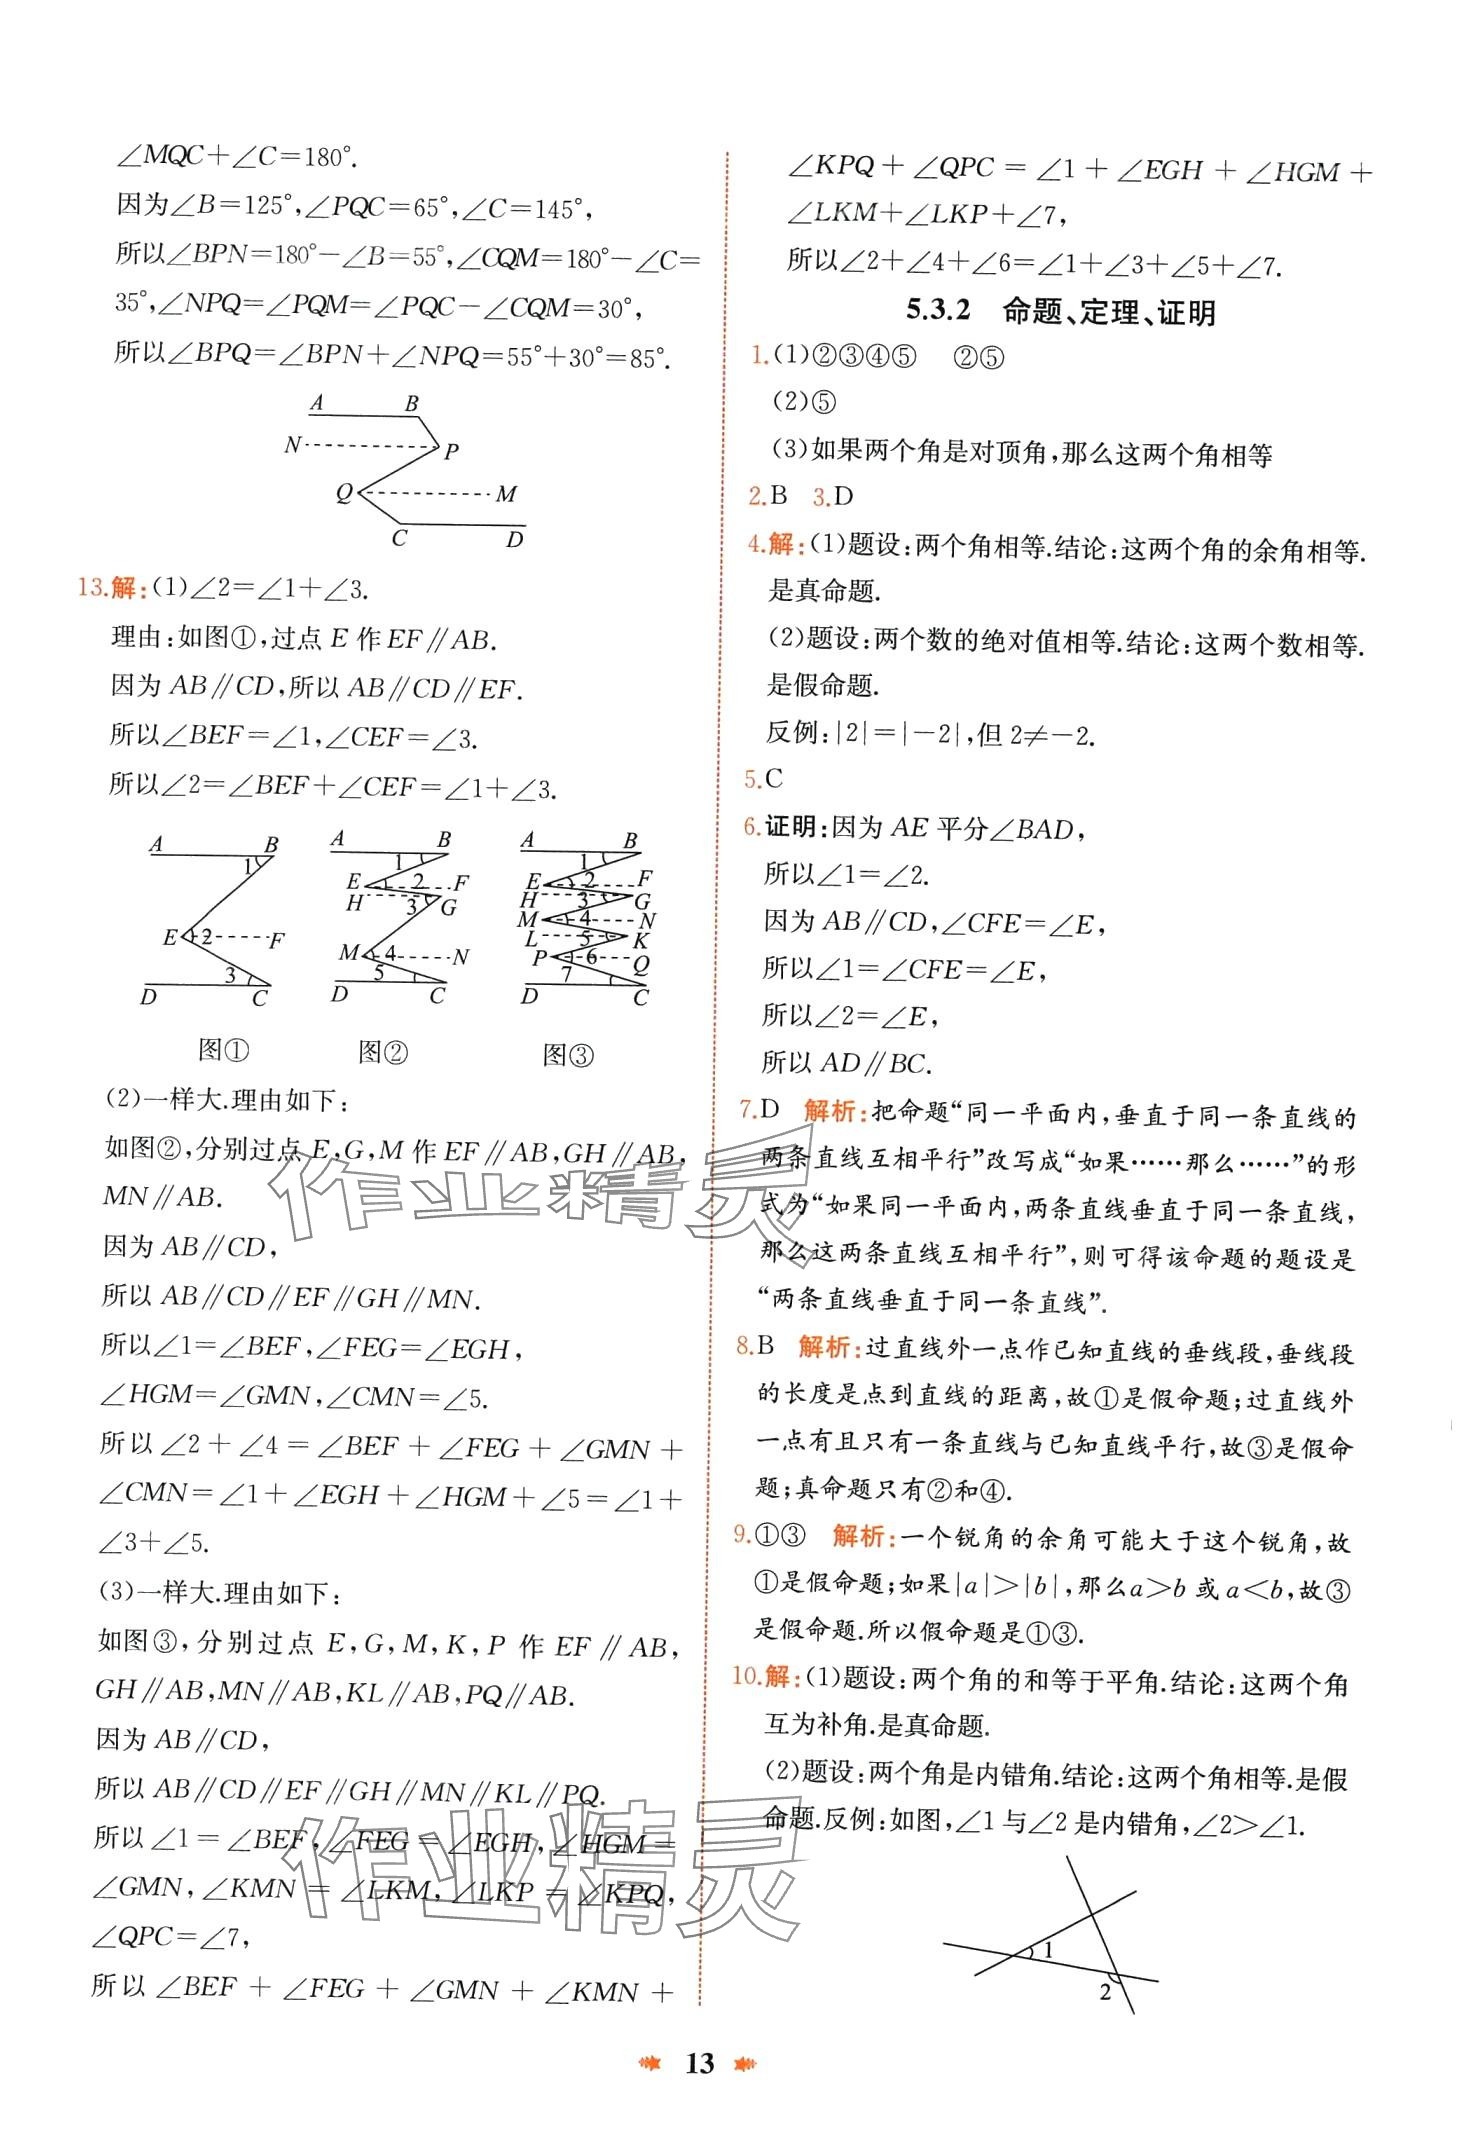 ∠MQC+∠C=180°.
因为∠B=125°,∠PQC=65°,∠C=145°,
所以∠BPN=180°-∠B=55°,∠CQM=180°-∠C=
35°,∠NPQ=∠PQM=∠PQC-∠CQM=30°,
所以∠BPQ=∠BPN+∠NPQ=55°+30°=85°.
A B
N P
Q M
C D
13.解:(1)∠2=∠1+∠3.
理由:如图①,过点 E 作 EF∥AB.
因为 AB∥CD,所以 AB∥CD∥EF.
所以∠BEF=∠1,∠CEF=∠3.
所以∠2=∠BEF+∠CEF=∠1+∠3.
A B 1 E 2 F 3 D C
A B 1 E 2 F H 3 G M 4 N 5 D C
A B 1 E 2 F H 3 G M 4 N L 5 K P 6 Q 7 D C
图① 图② 图③
(2)一样大.理由如下:
如图②,分别过点 E,G,M 作 EF∥AB,GH∥AB,
MN∥AB.
因为 AB∥CD,
所以 AB∥CD∥EF∥GH∥MN.
所以∠1=∠BEF,∠FEG=∠EGH,
∠HGM=∠GMN,∠CMN=∠5.
所以∠2+∠4=∠BEF+∠FEG+∠GMN+
∠CMN=∠1+∠EGH+∠HGM+∠5=∠1+
∠3+∠5.
(3)一样大.理由如下:
如图③,分别过点 E,G,M,K,P 作 EF∥AB,
GH∥AB,MN∥AB,KL∥AB,PQ∥AB.
因为 AB∥CD,
所以 AB∥CD∥EF∥GH∥MN∥KL∥PQ.
所以∠1=∠BEF,∠FEG=∠EGH,∠HGM=
∠GMN,∠KMN=∠LKM,∠LKP=∠KPQ,
∠QPC=∠7,
所以∠BEF+∠FEG+∠GMN+∠KMN+
∠KPQ+∠QPC=∠1+∠EGH+∠HGM+
∠LKM+∠LKP+∠7,
所以∠2+∠4+∠6=∠1+∠3+∠5+∠7.
5.3.2 命题、定理、证明
1.(1)②③④⑤ ②⑤
(2)⑤
(3)如果两个角是对顶角,那么这两个角相等
2.B 3.D
4.解:(1)题设:两个角相等.结论:这两个角的余角相等.
是真命题.
(2)题设:两个数的绝对值相等.结论:这两个数相等.
是假命题.
反例:|2|=|-2|,但 2≠-2.
5.C
6.证明:因为 AE 平分∠BAD,
所以∠1=∠2.
因为 AB∥CD,∠CFE=∠E,
所以∠1=∠CFE=∠E,
所以∠2=∠E,
所以 AD∥BC.
7.D 解析:把命题“同一平面内,垂直于同一条直线的
两条直线互相平行”改写成“如果……那么……”的形
式为“如果同一平面内,两条直线垂直于同一条直线,
那么这两条直线互相平行”,则可得该命题的题设是
“两条直线垂直于同一条直线”.
8.B 解析:过直线外一点作已知直线的垂线段,垂线段
的长度是点到直线的距离,故①是假命题;过直线外
一点有且只有一条直线与已知直线平行,故③是假命
题;真命题只有②和④.
9.①③ 解析:一个锐角的余角可能大于这个锐角,故
①是假命题;如果|a|>|b|,那么a>b 或 a<b,故③
是假命题.所以假命题是①③.
10.解:(1)题设:两个角的和等于平角.结论:这两个角
互为补角.是真命题.
(2)题设:两个角是内错角.结论:这两个角相等.是假
命题.反例:如图,∠1 与∠2 是内错角,∠2>∠1.
1
2
13
作业精灵
作业精灵